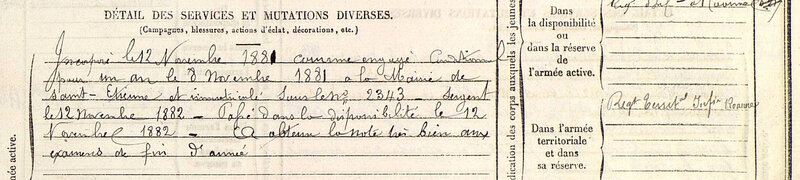 DÉTAIL DES SERVICES ET MUTATIONS DIVERSES.
(Campagnes, blessures, actions d'éclat, décorations, etc.)
Incorporé le 12 Novembre 1881 comme engagé Conditionnel
pour un an le 8 Novembre 1881 a la Mairie de
Saint-Etienne et immatriculé sous le N° 2343 - Sergent
le 12 Novembre 1882 - Passé dans la disponibilité le 12
Novembre 1882 - A obtenu la note très bien aux
examens de fin d'année
ée active.
dication des corps auxquels les jeunes
Dans
la disponibilité
ou
dans la réserve
de
l'armée active.
Régt Territ.l Inf.ie Roanne
Dans l'armée
territoriale
et dans
sa réserve.